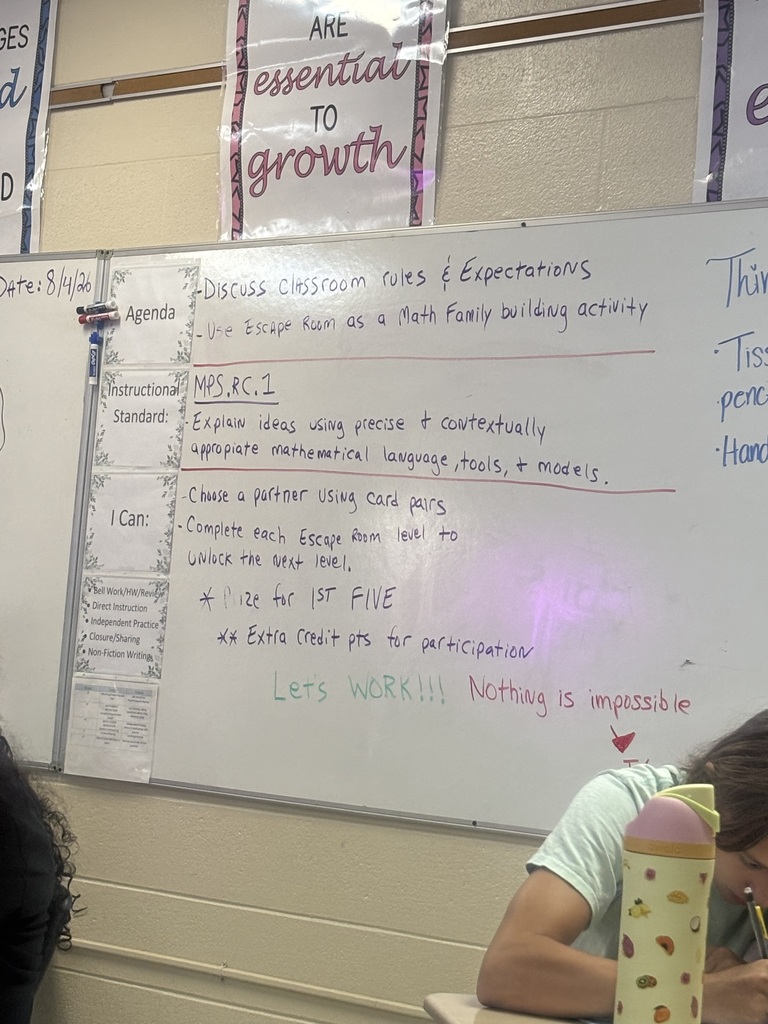 GES
d
D
ARE
essential
TO
growth
e
Date: 8/4/26
Agenda
- Discuss classroom rules & Expectations
- Use Escape Room as a Math Family building activity
Instructional
Standard:
MPS.RC.1
- Explain ideas using precise + contextually
appropiate mathematical language, tools, + models.
I Can:
- Choose a partner using card pairs
- Complete each Escape Room level to
unlock the next level.
• Bell Work/HW/Revi
• Direct Instruction
• Independent Practice
• Closure/Sharing
• Non-Fiction Writing
* Prize for 1ST FIVE
** Extra Credit pts for participation
Let's WORK!!! Nothing is impossible
Thin
• Tiss
penc
• Hand